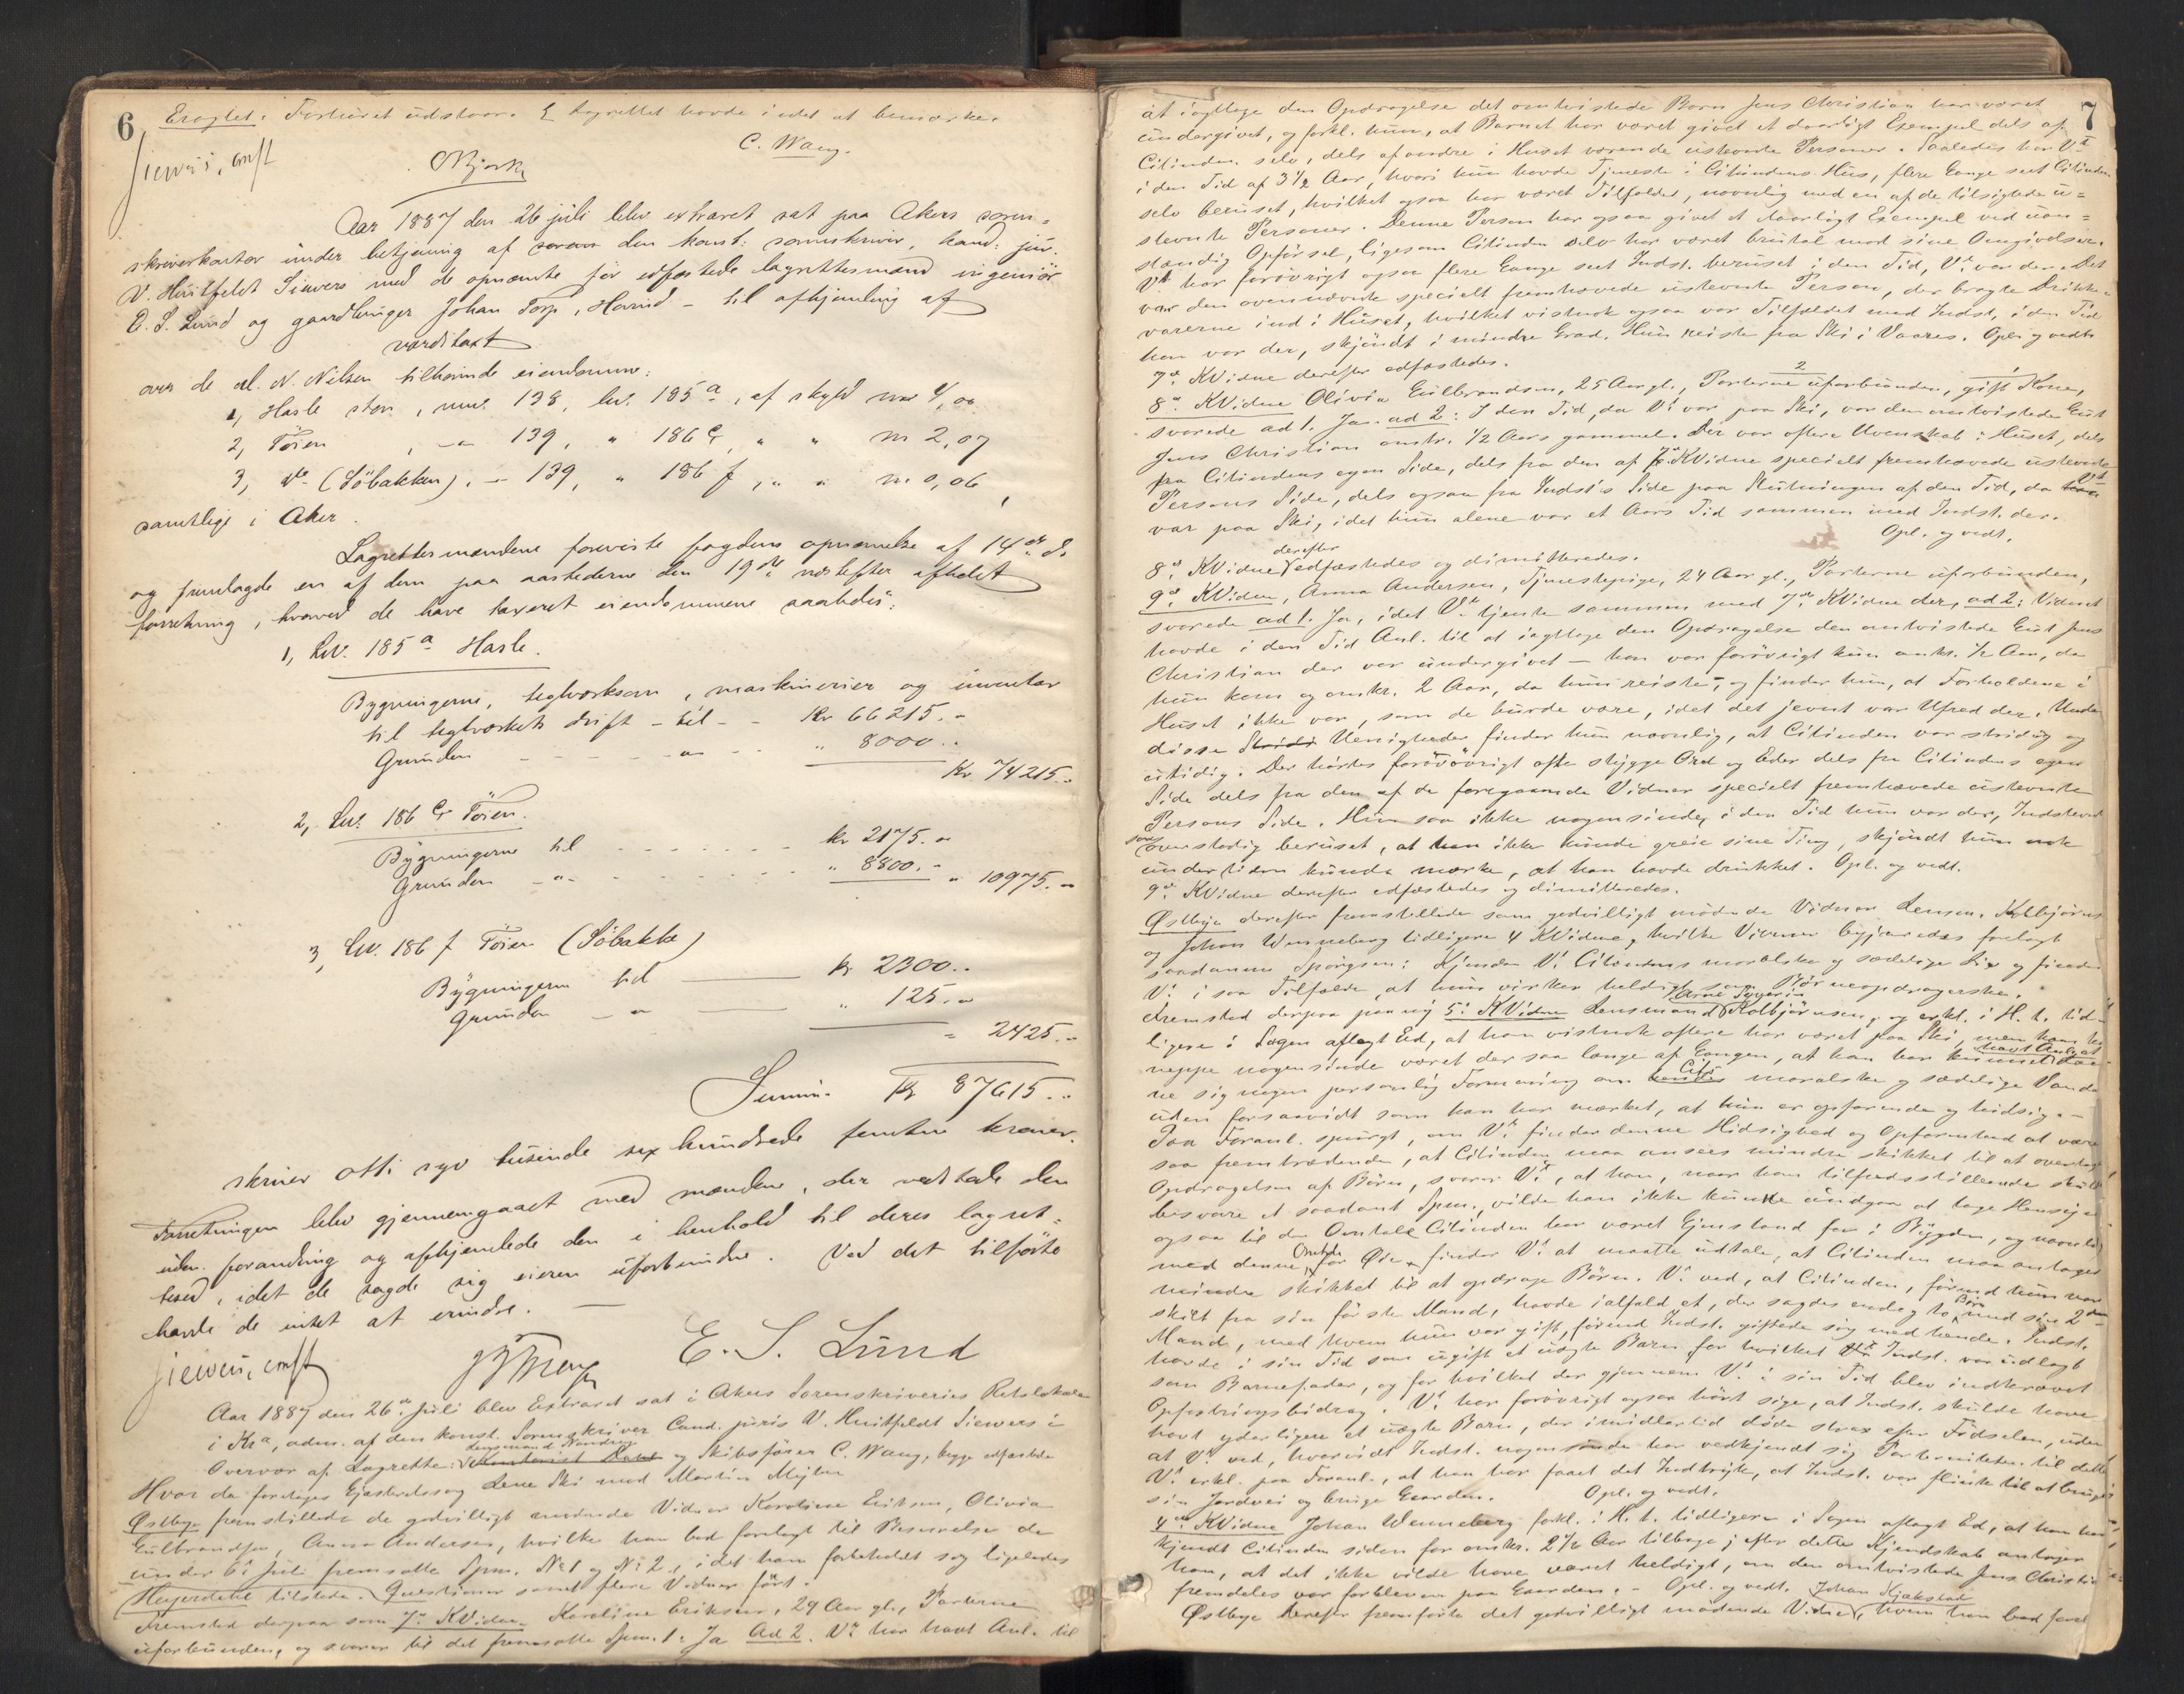 6
Eragtet: Forhöret udstaar. Lagrettet havde intet at bemærke.
C. Wang.
Siewers, const
Aar 1887 den 26 juli blev extraret sat paa Akers soren-
skriverkontor under betjening af den konst: sorenskriver, kand: jur:
V. Huitfeldt Siewers med de opnævnte för edfæstede lagrettesmænd ingeniör
E. S. Lund og gaardbruger Johan Torp, - til afhjemling af
værditaxt
over de al. N. Nilsen tilhörende eiendomme:
1, Hasle , mnr. 138, lnr. 185 a, af skyld
2, Töien , -"- 139, " 186 , " " m 2,07
3, do (Söbakken), -"- 139, " 186 f, " " m 0,06,
samtlige i Aker.
Lagrettesmændene foreviste fogdens opnævnelse af 14de ds
og fremlagde en af dem paa aastederne den 19de næstefter afholdt
forretning, hvorved de have taxeret eiendommene saaledes:
1, Lnr. 185 a Hasle.
Bygningerne, teglværksovn, maskinerier og inventar
til teglværkets drift - til - - Kr 66215.-
Grunden - - - - " - - " 8000.-
Kr 74215.-
2, Lnr. 186 Töien.
Bygningerne til - - - - - kr 2175.-
Grunden -"- - - - - " 8800.- " 10975.-
3, Lnr. 186 f Töien (Söbakke)
Bygningerne til — kr 2300.-
Grunden -"- — " 125.-
" 2425.-
Summa Kr 87615.-
skriver otti syv tusinde sex hundrede femten kroner.
Forretningen blev gjennemgaaet med mændene, der vedtode den
uden forandring og afhjemlede den i henhold til deres lagret-
tesed, idet de sagde sig eieren uforbundne. Ved det tilförte
havde de intet at erindre. —
Siewers, const
E. S. Lund
Aar 1887 den 26de Juli blev Extraret sat i Akers Sorenskriveries Retslokale
i Kra, adm. af den konst. Sorenskriver Cand. juris V. Huitfeldt Siewers i
Overvær af Lagrette: lensmand og Skibsförer C. Wang, begge edfæstede
Hvor da foretoges Gjæsteretssag Lene Ski mod Martin
Östbye fremstillede de godvilligt mödende Vidner Karoline Eriksen, Olivia
Gulbrandsen, Anna Andersen, hvilke han bad forelagt til Besvarelse de
under 6te Juli fremsatte Spm. No 1 og No 2, idet han forbeholdt sig ligeledes
Heyerdahl tilstede. Questioner samt flere Vidner fört.
Fremstod derpaa som 7de KVidne Karoline Eriksen, 29 Aar gl., Parterne
uforbunden, og svarer til det fremsatte Spm. 1: Ja Ad 2. Vt har havt Anl. til
7
at iagttage den Opdragelse det omtvistede Barn Jens Christian har været
undergivet, og forkl. hun, at Barnet har været givet et daarligt Exempel dels af
Citinden selv, dels af andre i Huset værende ustevnte Personer. Saaledes har Vt
i den Tid af 3 1/2 Aar, hvori hun havde Tjeneste i Citindens Hus, flere Gange seet Citinden
selv beruset, hvilket ogsaa har været Tilfældet, navnlig med en af de tilsigtede u-
stevnte Personer. Denne Person har ogsaa givet et daarligt Exempel ved uan-
stændig Opförsel, ligesom Citinden selv har været brutal mod sine Omgivelser.
Vt har forövrigt ogsaa flere Gange seet Indst. beruset i den Tid, Vt var der. Det
var den ovennævnte specielt fremhævede ustevnte Person, der bragte Drikke-
varerne ind i Huset, hvilket vistnok ogsaa var Tilfældet med Indst. i den Tid
han var der, skjöndt i mindre Grad. Hun reiste fra Ski i Vaares. Opl. og vedt.
7de KVidne derefter edfæstedes.
8de KVidne Olivia Gulbrandsen, 25 Aar gl., Parterne uforbunden, gift Kone,
svarede ad 1. Ja. ad 2: I den Tid, da Vt var paa Ski, var den omtvistede Gut
Jens Christian omtr. 1/2 Aars gammel. Der var oftere Uvenskab i Huset, dels
fra Citindens egen Side, dels fra den af 7de KVidne specielt fremhævede ustevnte
Persons Side, dels ogsaa fra Indst's Side paa Slutningen af den Tid, da Vt
var paa Ski, idet hun alene var et Aars Tid sammen med Indst. der.
Opl. og vedt.
8de KVidne derefter edfæstedes og dimitteredes.
9de KVidne, Anna Andersen, Tjenestepige, 24 Aar gl., Parterne uforbunden,
svarede ad 1. Ja, idet Vt tjente sammen med 7de KVidne der, ad 2: Vidnet
havde i den Tid Anl. til at iagttage den Opdragelse den omtvistede Gut Jens
Christian der var undergivet — han var forövrigt kun omtr. 1/2 Aar, da
hun kom og omtr. 2 Aar, da hun reiste, og finder hun, at Forholdene i
Huset ikke var, som de burde være, idet det jevnt var Ufred der. Under
disse Uenigheder finder hun navnlig, at Citinden var stridig og
utidig. Der hörtes forövrigt ofte stygge Ord og Eder dels fra Citindens egen
Side dels fra den af de foregaaende Vidner specielt fremhævede ustevnte
Persons Side. Hun saa ikke nogensinde, i den Tid hun var der, Indstevnte
saa overstadig beruset, at han ikke kunde greie sine Ting, skjöndt hun nok
undertiden kunde mærke, at han havde drukket. Opl. og vedt.
9de KVidne derefter edfæstedes og dimitteredes.
Östbye derefter fremstillede som godvilligt mödende Vidner Lensm. Kolbjörnsen
og Johan Wenneberg tidligere 4 KVidne, hvilke Vidner begjæredes forelagt
saadanne Spörgsm: Kjender Vt Citindens moralske og sædelige Liv og finder
Vt i saa Tilfælde, at hun virker heldigt som Börneopdragerske.
Fremstod derpaa paany 5te KVidne Lensmand Kolbjörnsen, og erkl. i H. t. tid-
ligere i Sagen aflagt Ed, at han vistnok oftere har været paa Ski, men kan
neppe nogensinde været der saa længe af Gangen, at han har havt Anl. at dan-
ne sig nogen personlig Formening om Cit's moralske og sædelige Vandel
uden forsaavidt som han har mærket, at hun er opfarende og hidsig. -
Paa Foranl. spurgt, om Vt finder denne Hidsighed og Opfarenhed at være
saa fremtrædende, at Citinden maa ansees mindre skikket til at overtage
Opdragelsen af Börn, svarer Vt, at han, naar han tilfredsstillende skulde
besvare et saadant Spm., vilde han ikke kunne undgaa at tage Hensyn
ogsaa til den Omtale Citinden har været Gjenstand for i Bygden, og navnlig
med denne Omtale for Öie finder Vt at maatte udtale, at Citinden maa antages
mindre skikket til at opdrage Börn. Vt ved, at Citinden, förend hun var
skilt fra sin förste Mand, havde ialfald et, der sagdes endog to Börn med sin 2den
Mand, med hvem hun var gift, förend Indst. giftede sig med hende. Indst.
havde i sin Tid som ugift et uægte Barn for hvilket Indst. var udlagt
som Barnefader, og for hvilket der gjennem Vt i sin Tid blev indkrævet
Opfostringsbidrag. Vt har forövrigt ogsaa hört sige, at Indst. skulde have
havt yderligere et uægte Barn, der imidlertid döde strax efter Födselen, uden
at Vt ved, hvorvidt Indst. nogensinde har vedkjendt sig Paterniteten til dette
Vt erkl. paa Foranl., at han har faaet det Indtryk, at Indst. var flink til at bruge
sin Jordvei og bruge Gaarden. Opl. og vedt.
4de KVidne Johan Wenneberg forkl. i H. t. tidligere i Sagen aflagt Ed, at han har
kjendt Citinden siden for omtr. 2 1/2 Aar tilbage; efter dette Kjendskab antager
han, at det ikke vilde have været heldigt, om den omtvistede Jens Christian
fremdeles var forbleven paa Gaarden. - Opl. og vedt.
Östbye derefter fremförte det godvilligt mödende Vidne Johan, hvem han bad forel